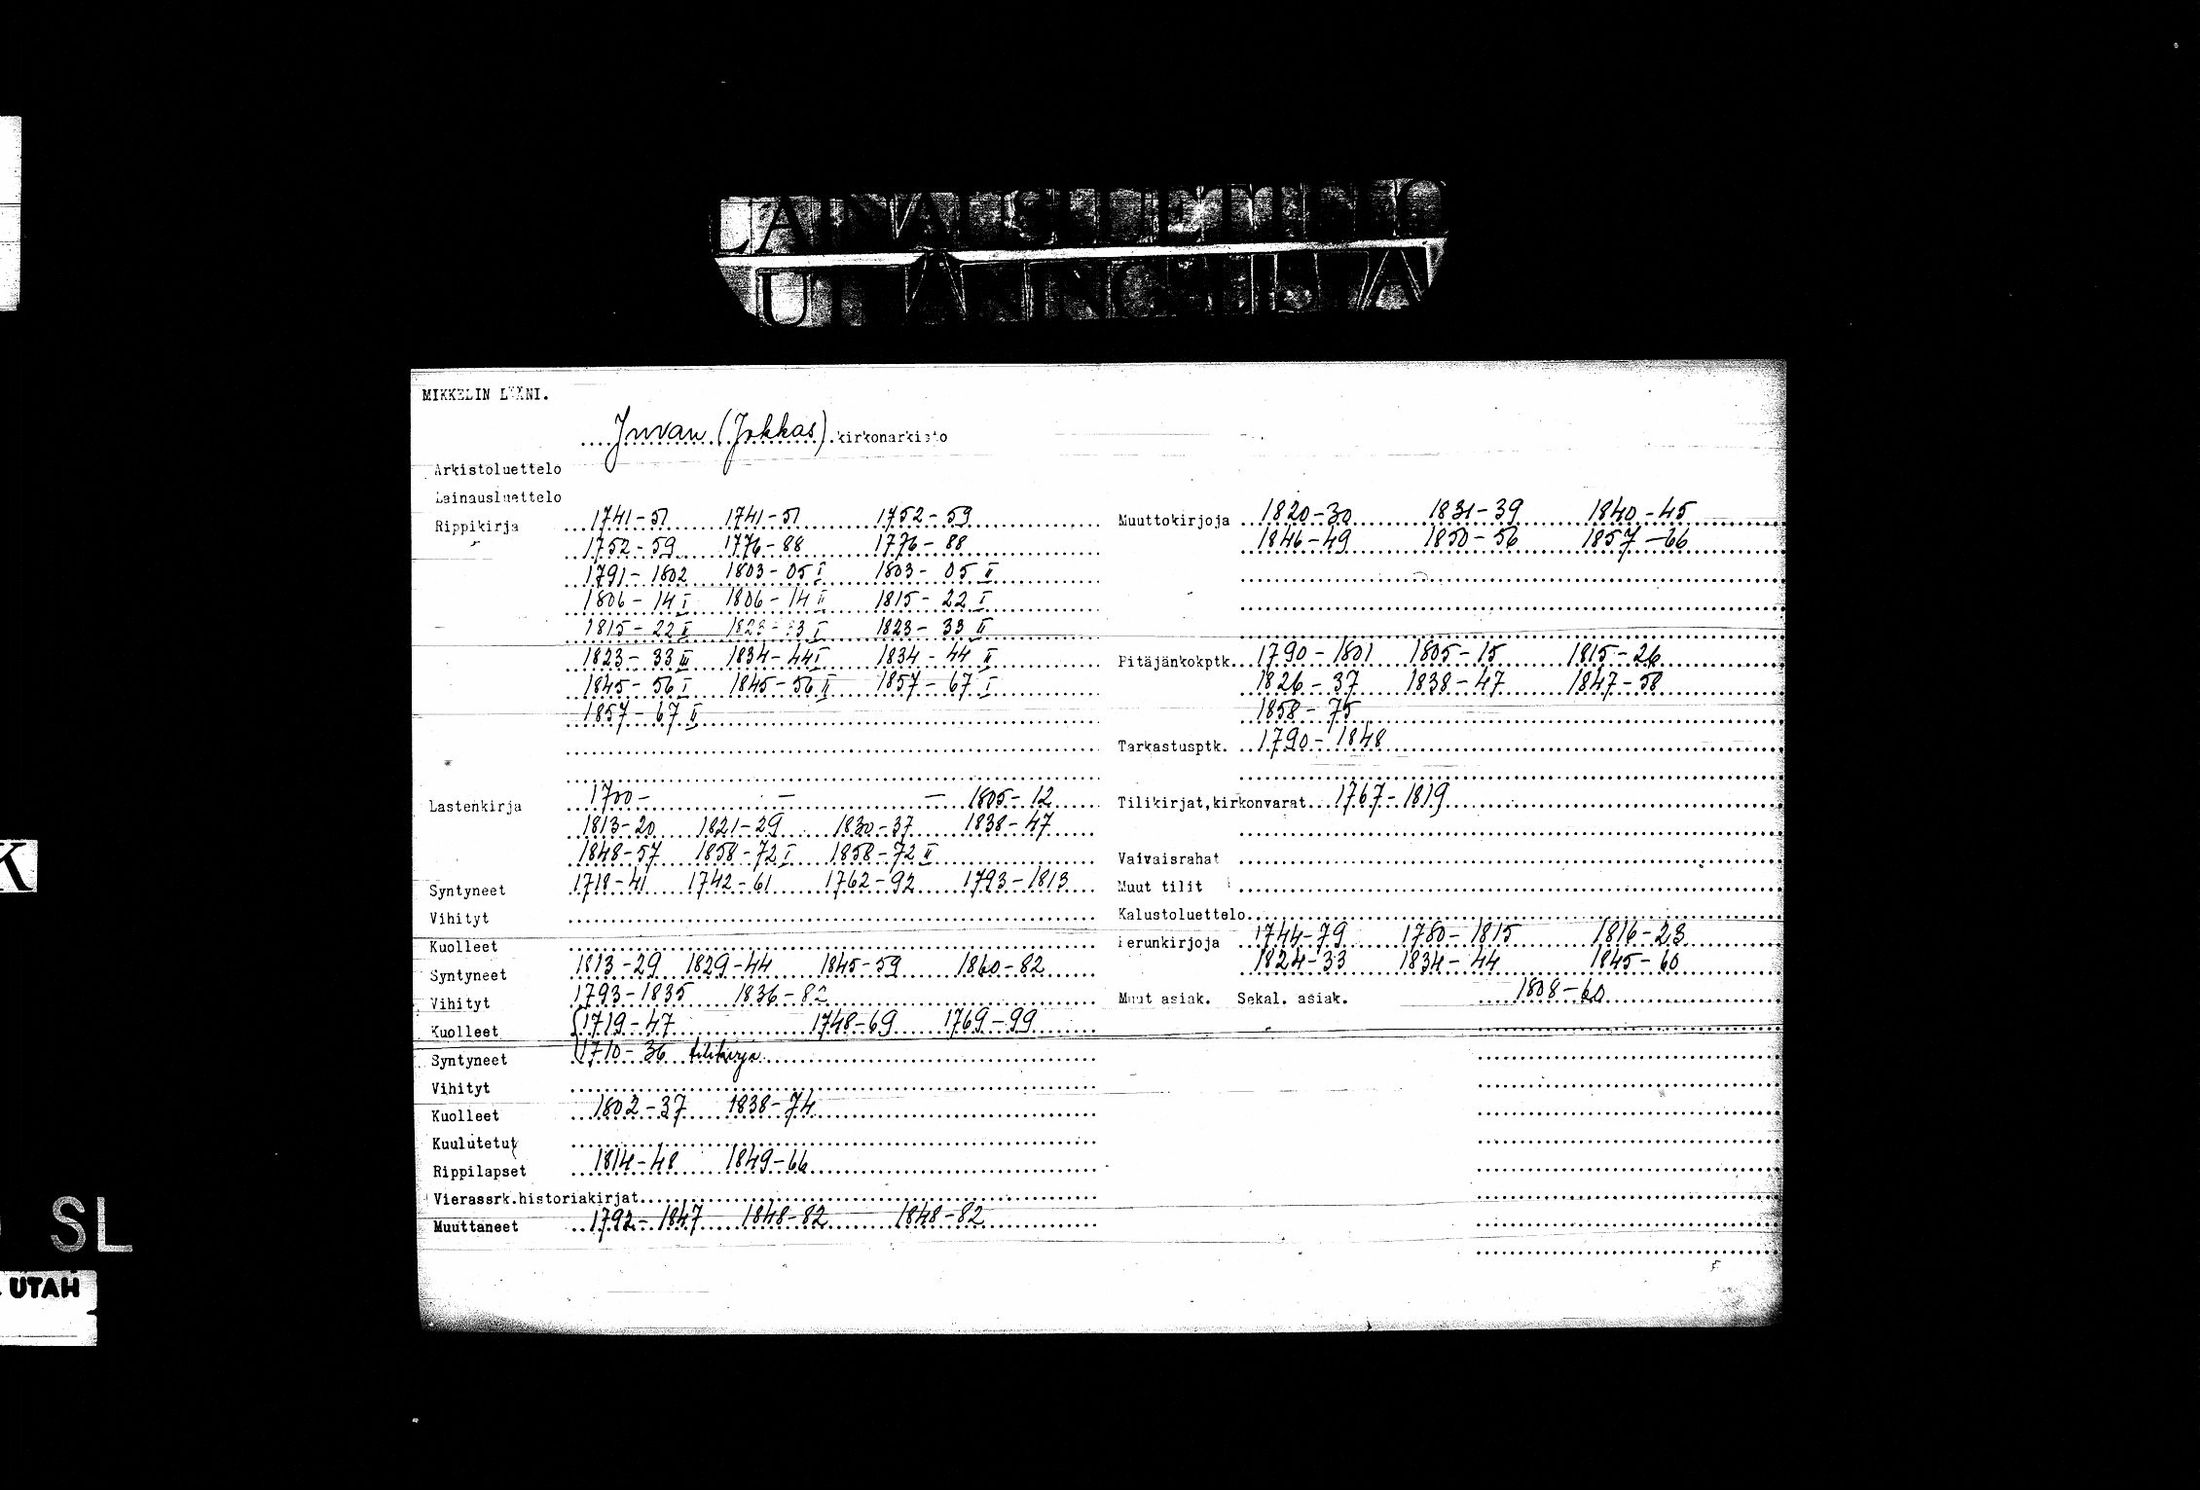 LAINAUSLUETTELO
MIKKELIN LÄÄNI.
Juvan (Jokkas) kirkonarkisto
Arkistoluettelo
Lainausluettelo
Rippikirja 1741-51 1741-51 1752-59
1752-59 1776-88 1776-88
1791-1802 1803-05 I 1803-05 II
1806-14 I 1806-14 II 1815-22 I
1815-22 II 1823-33 I 1823-33 II
1823-33 III 1834-44 I 1834-44 II
1845-56 I 1845-56 II 1857-67 I
1857-67 II
Lastenkirja 1700- - - 1805-12
1813-20 1821-29 1830-37 1838-47
1848-57 1858-72 I 1858-72 II
Syntyneet 1718-41 1742-61 1762-92 1793-1813
Vihityt
Kuolleet
Syntyneet 1813-29 1829-44 1845-59 1860-82
Vihityt 1793-1835 1836-82
Kuolleet 1719-47 1748-69 1769-99
Syntyneet 1710-36 tilikirja
Vihityt
Kuolleet 1802-37 1838-74
Kuulutetut
Rippilapset 1814-48 1849-66
Vierassrk.historiakirjat
Muuttaneet 1792-1847 1848-82 1848-82
Muuttokirjoja 1820-30 1831-39 1840-45
1846-49 1850-56 1857-66
Pitäjänkokptk. 1790-1801 1805-15 1815-26
1826-37 1838-47 1847-58
1858-75
Tarkastusptk. 1790-1848
Tilikirjat,kirkonvarat 1767-1819
Vaivaisrahat
Muut tilit
Kalustoluettelo
Perunkirjoja 1744-79 1780-1815 1816-23
1824-33 1834-44 1845-60
Muut asiak. Sekal. asiak. 1808-60
K
SL
UTAH